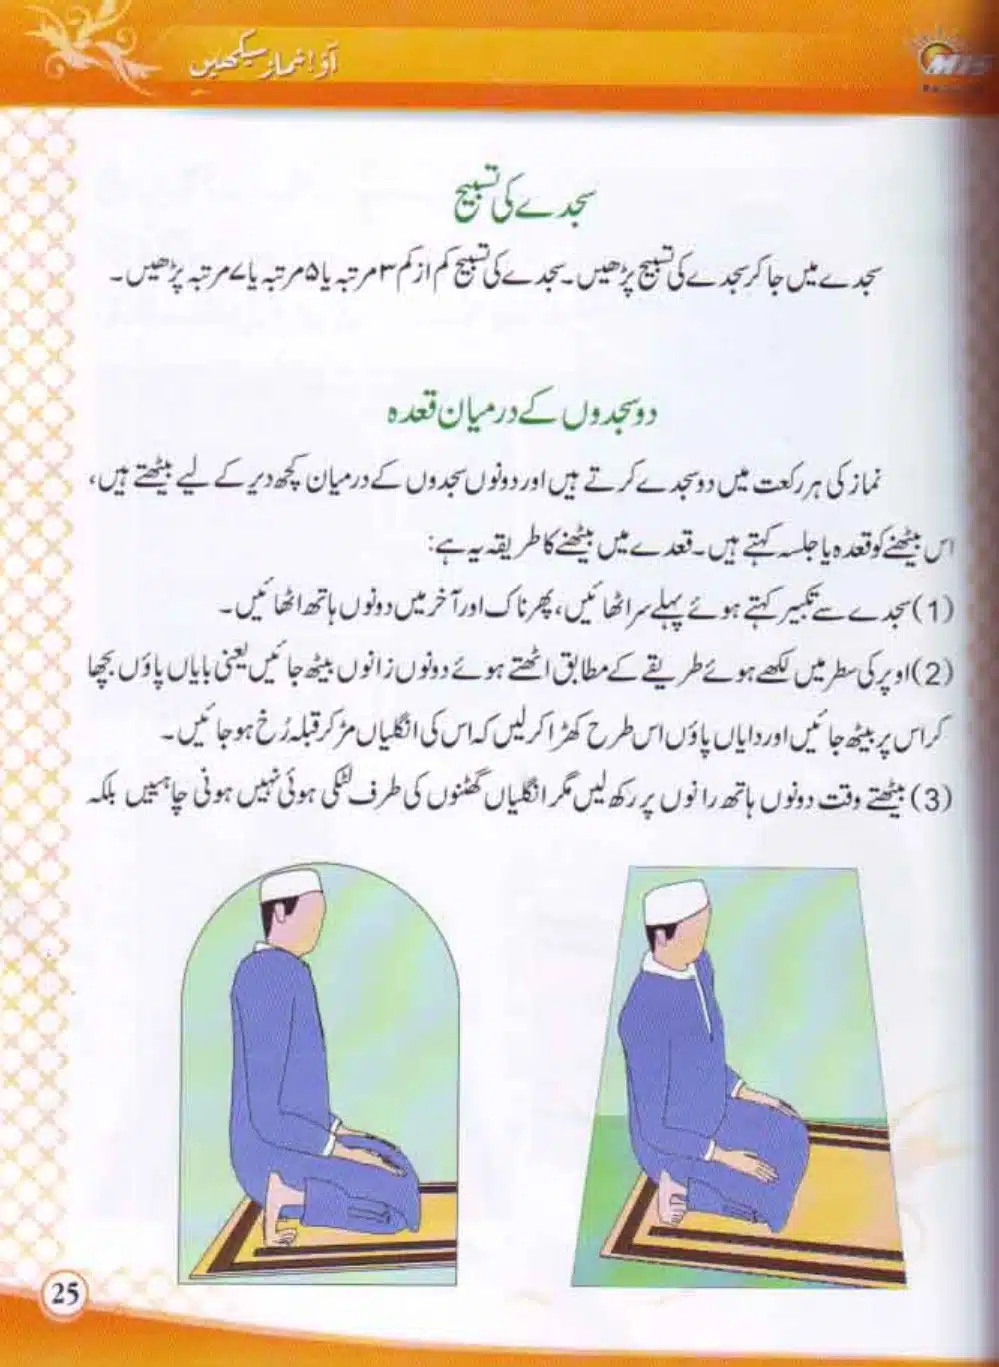 آؤ! نماز سیکھیں
MIS
سجدے کی تسبیح
سجدے میں جا کر سجدے کی تسبیح پڑھیں۔ سجدے کی تسبیح کم از کم ۳ مرتبہ یا ۵ مرتبہ یا ۷ مرتبہ پڑھیں۔
دو سجدوں کے درمیان قعدہ
نماز کی ہر رکعت میں دو سجدے کرتے ہیں اور دونوں سجدوں کے درمیان کچھ دیر کے لیے بیٹھتے ہیں،
اس بیٹھنے کو قعدہ یا جلسہ کہتے ہیں۔ قعدے میں بیٹھنے کا طریقہ یہ ہے:
(1) سجدے سے تکبیر کہتے ہوئے پہلے سر اٹھائیں، پھر ناک اور آخر میں دونوں ہاتھ اٹھائیں۔
(2) اوپر کی سطر میں لکھے ہوئے طریقے کے مطابق اٹھتے ہوئے دونوں زانوں بیٹھ جائیں یعنی بایاں پاؤں بچھا
کر اس پر بیٹھ جائیں اور دایاں پاؤں اس طرح کھڑا کر لیں کہ اس کی انگلیاں مڑ کر قبلہ رُخ ہو جائیں۔
(3) بیٹھتے وقت دونوں ہاتھ رانوں پر رکھ لیں مگر انگلیاں گھٹنوں کی طرف لٹکی ہوئی نہیں ہونی چاہییں بلکہ
25